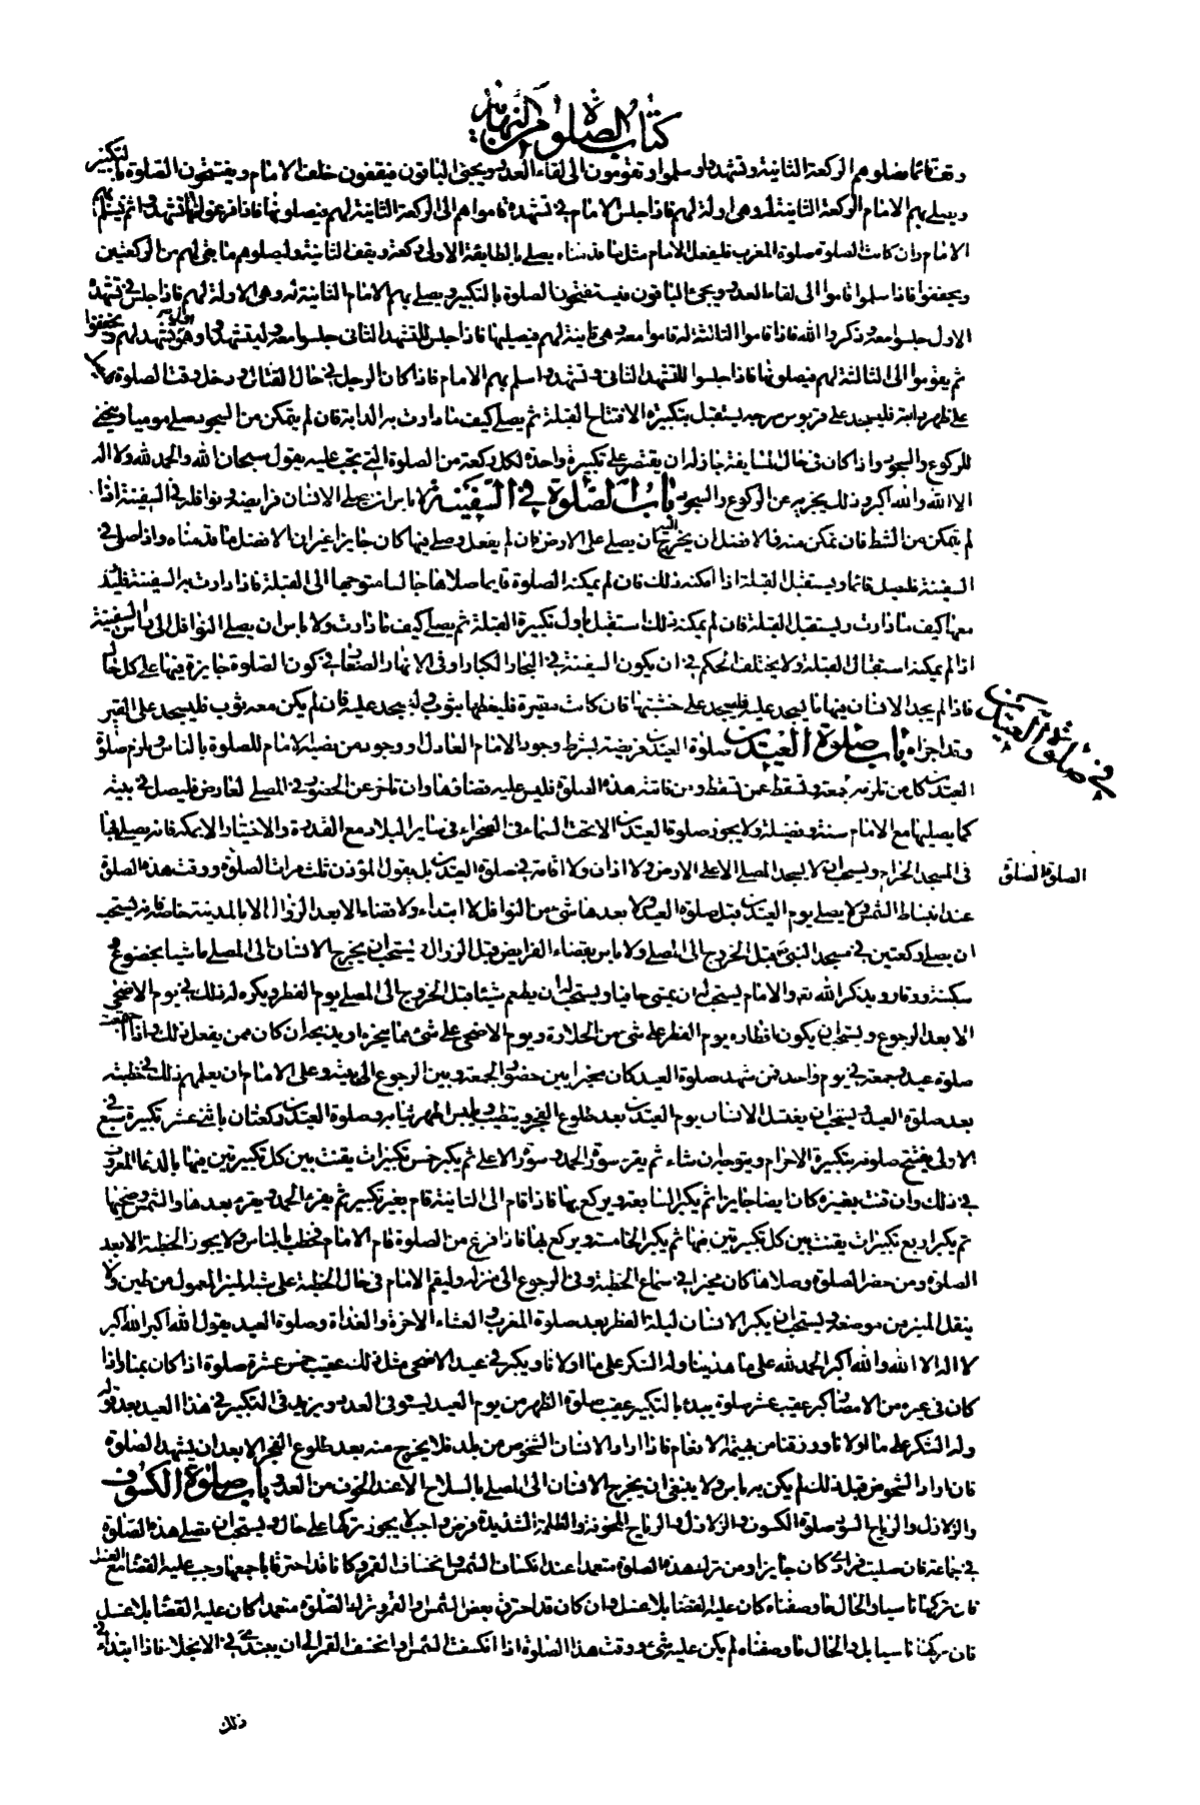 كتاب الصلوة من النهاية
وقف قائما وصلوا هم الركعة الثانية وتشهدوا وسلموا ويقومون الى لقاء العدو ويجئ الباقون فيقفون خلف الامام ويفتتحون الصلوة بالتكبير
ويصلي بهم الامام الركعة الثانية له وهي اولة لهم فاذا جلس الامام في تشهده قاموا هم الى الركعة الثانية لهم فيصلونها فاذا فرغوا منها تشهدوا ثم يسلم بهم
الامام وان كانت الصلوة صلوة المغرب فليفعل الامام مثل ما قدمناه يصلي بالطايفة الاولى ركعة ويقف الثانية وليصلوا هم ما بقى لهم من الركعتين
ويخففوا فاذا سلموا قاموا الى لقاء العدو ويجئ الباقون فيستفتحون الصلوة بالتكبير ويصلي بهم الامام الثانية له وهي الاولة لهم فاذا جلس في تشهده
الاول جلسوا معه وذكروا الله فاذا قاموا الثالثة له قاموا معه وهي ثانية لهم فيصليها فاذا جلس للتشهد الثاني جلسوا معه ليتشهدوا وهو اول تشهد لهم ويخففوا
ثم يقوموا الى الثالثة لهم فيصلونها فاذا جلسوا للتشهد الثاني وتشهدوا سلم بهم الامام فاذا كان الرجل في حال القتال ودخل وقت الصلوة
على ظهر دابته فليسجد على قربوس سرجه يستقبل بتكبيرة الافتتاح القبلة ثم يصلي كيف ما دارت به الدابة فان لم يتمكن من السجود صلى موميا وينحني
للركوع والسجود واذا كان في حال المسايفة جاز له ان يقتصر على تكبيرة واحدة لكل ركعة من الصلوة التي يجب عليه يقول سبحان الله والحمد لله ولا اله
الا الله والله اكبر وذلك يجزيه عن الركوع والسجود باب الصلوة في السفينة لا باس ان يصلي الانسان فرايضه ونوافله في السفينة اذا
لم يتمكن من الشط فان تمكن منه فالافضل ان يخرج اليه يصلي على الارض فان لم يفعل وصلى فيها كان جايزا غير ان الافضل ما قدمناه واذا صلى في
السفينة فليصل قائما ويستقبل القبلة اذا امكنه ذلك فان لم يمكنه الصلوة قايما صلاها جالسا متوجها الى القبلة فاذا دارت به السفينة فليدر
معها كيف ما دارت ويستقبل القبلة فان لم يمكنه ذلك استقبل باول تكبيرة القبلة ثم يصلي كيف ما دارت ولا باس ان يصلي النوافل الى راس السفينة
اذا لم يمكنه استقبال القبلة ولا يختلف الحكم في ان يكون السفينة في البحار الكبار او في الانهار الصغار في كون الصلوة جايزة فيها على كل حال
فاذا لم يجد الانسان فيها ما يسجد عليه فليسجد على خشبتها فان كانت مقيرة فليغطها بثوب ليسجد عليه فان لم يكن معه ثوب فليسجد على القير
وقد اجزاه باب صلوة العيدين صلوة العيدين فريضة بشرط وجود الامام العادل او وجود من نصبه الامام للصلوة بالناس ويلزم صلوة
العيدين كل من تلزمه جمعة وتسقط عمن تسقط ومن فاتته هذه الصلوة فليس عليه قضاؤها وان تاخر عن الحضور في المصلى لعارض فليصل في بيته
كما يصليها مع الامام سنة وفضيلة ولا يجوز صلوة العيدين الا تحت السماء في الصحراء في ساير البلاد مع القدرة والاختيار الا بمكة فانه يصلي بها
في المسجد الحرام ويستحب ان لا يسجد المصلي الا على الارض ولا اذان ولا اقامة في صلوة العيدين بل يقول المؤذن ثلث مرات الصلوة ووقت هذه الصلوة
عند انبساط الشمس ولا يصلي يوم العيدين قبل صلوة العيد ولا بعدها شئ من النوافل لا ابتداء ولا قضاء الا بعد الزوال الا بالمدينة خاصة فانه يستحب
ان يصلي ركعتين في مسجد النبي قبل الخروج الى المصلى ولا باس بقضاء الفرايض قبل الزوال ويستحب ان يخرج الانسان الى المصلى ماشيا بخضوع و
سكينة ووقار ويذكر الله والامام يستحب له ان يمشي حافيا ويستحب له ان يطعم شيئا قبل الخروج الى المصلى يوم الفطر ويكره له ذلك في يوم الاضحى
الا بعد الرجوع ويستحب ان يكون افطاره يوم الفطر على شئ من الحلاوة ويوم الاضحى على شئ مما ينحره او يذبحه ان كان ممن يفعل ذلك واذا اجتمعت
صلوة عيد وجمعة في يوم واحد فمن شهد صلوة العيد كان مخيرا بين حضور الجمعة وبين الرجوع الى بيته وعلى الامام ان يعلمهم ذلك في خطبته
بعد صلوة العيد ويستحب ان يغتسل الانسان يوم العيدين بعد طلوع الفجر ويتطيب ويلبس اطهر ثيابه وصلوة العيدين ركعتان باثنتي عشر تكبيرة سبع في
الاولى يفتتح صلوته بتكبيرة الاحرام ويتوجه ان شاء ثم يقرء سورة الحمد وسورة الاعلى ثم يكبر خمس تكبيرات يقنت بين كل تكبيرتين منها بالدعاء المعروف
في ذلك وان قنت بغيره كان ايضا جايزا ثم يكبر السابعة ويركع بها فاذا قام الى الثانية قام بغير تكبير ثم يقرء الحمد ويقرء بعدها والشمس وضحيها
ثم يكبر اربع تكبيرات يقنت بين كل تكبيرتين منها ثم يكبر الخامسة ويركع بها فاذا فرغ من الصلوة قام الامام فخطب بالناس ولا يجوز الخطبة الا بعد
الصلوة ومن حضر الصلوة وصلاها كان مخيرا في سماع الخطبة وفي الرجوع الى منزله وليقم الامام في حال الخطبة على شبه المنبر المعمول من طين ولا
ينقل المنبر من موضعه ويستحب ان يكبر الانسان ليلة الفطر بعد صلوة المغرب والعشاء الاخرة والغداة وصلوة العيد يقول الله اكبر الله اكبر
لا اله الا الله والله اكبر الحمد لله على ما هدينا وله الشكر على ما اولانا ويكبر في عيد الاضحى مثل ذلك عقيب خمس عشرة صلوة اذا كان بمنا واذا
كان في غيره من الامصار كبر عقيب عشر صلوة يبدء بالتكبير عقيب صلوة الظهر من يوم العيد ليستوفي العدد ويزيد في التكبير في هذا العيد بعد قوله
وله الشكر على ما اولانا ورزقنا من بهيمة الانعام فاذا اراد الانسان الشخوص من بلد فلا يخرج منه بعد طلوع الفجر الا بعد ان يشهد الصلوة
فان اراد الشخوص قبل ذلك لم يكن به باس ولا ينبغي ان يخرج الانسان الى المصلى بالسلاح الا عند الخوف من العدو باب صلوة الكسوف
والزلازل والرياح السود صلوة الكسوف والزلازل والرياح المخوفة والظلمة الشديدة فرض واجب لا يجوز تركها على حال ويستحب ان تصلى هذه الصلوة
في جماعة فان صليت فرادى كان جايزا ومن ترك هذه الصلوة متعمدا عند انكساف الشمس وانخساف القمر وكانا قد احترقا باجمعهما وجب عليه القضاء مع الغسل
فان تركها ناسيا والحال ما وصفناه كان عليه القضا بلا غسل وان كان قد احترق بعض الشمس والقمر وترك الصلوة متعمدا كان عليه القضا بلا غسل
فان تركها ناسيا والحال ما وصفناه لم يكن عليه شئ ووقت هذا الصلوة اذا انكسفت الشمس وانخسف القمر الى ان يبتدى في الانجلا فاذا ابتداء في
ذلك
في صلوة العيدين
الصلوة الصلوة